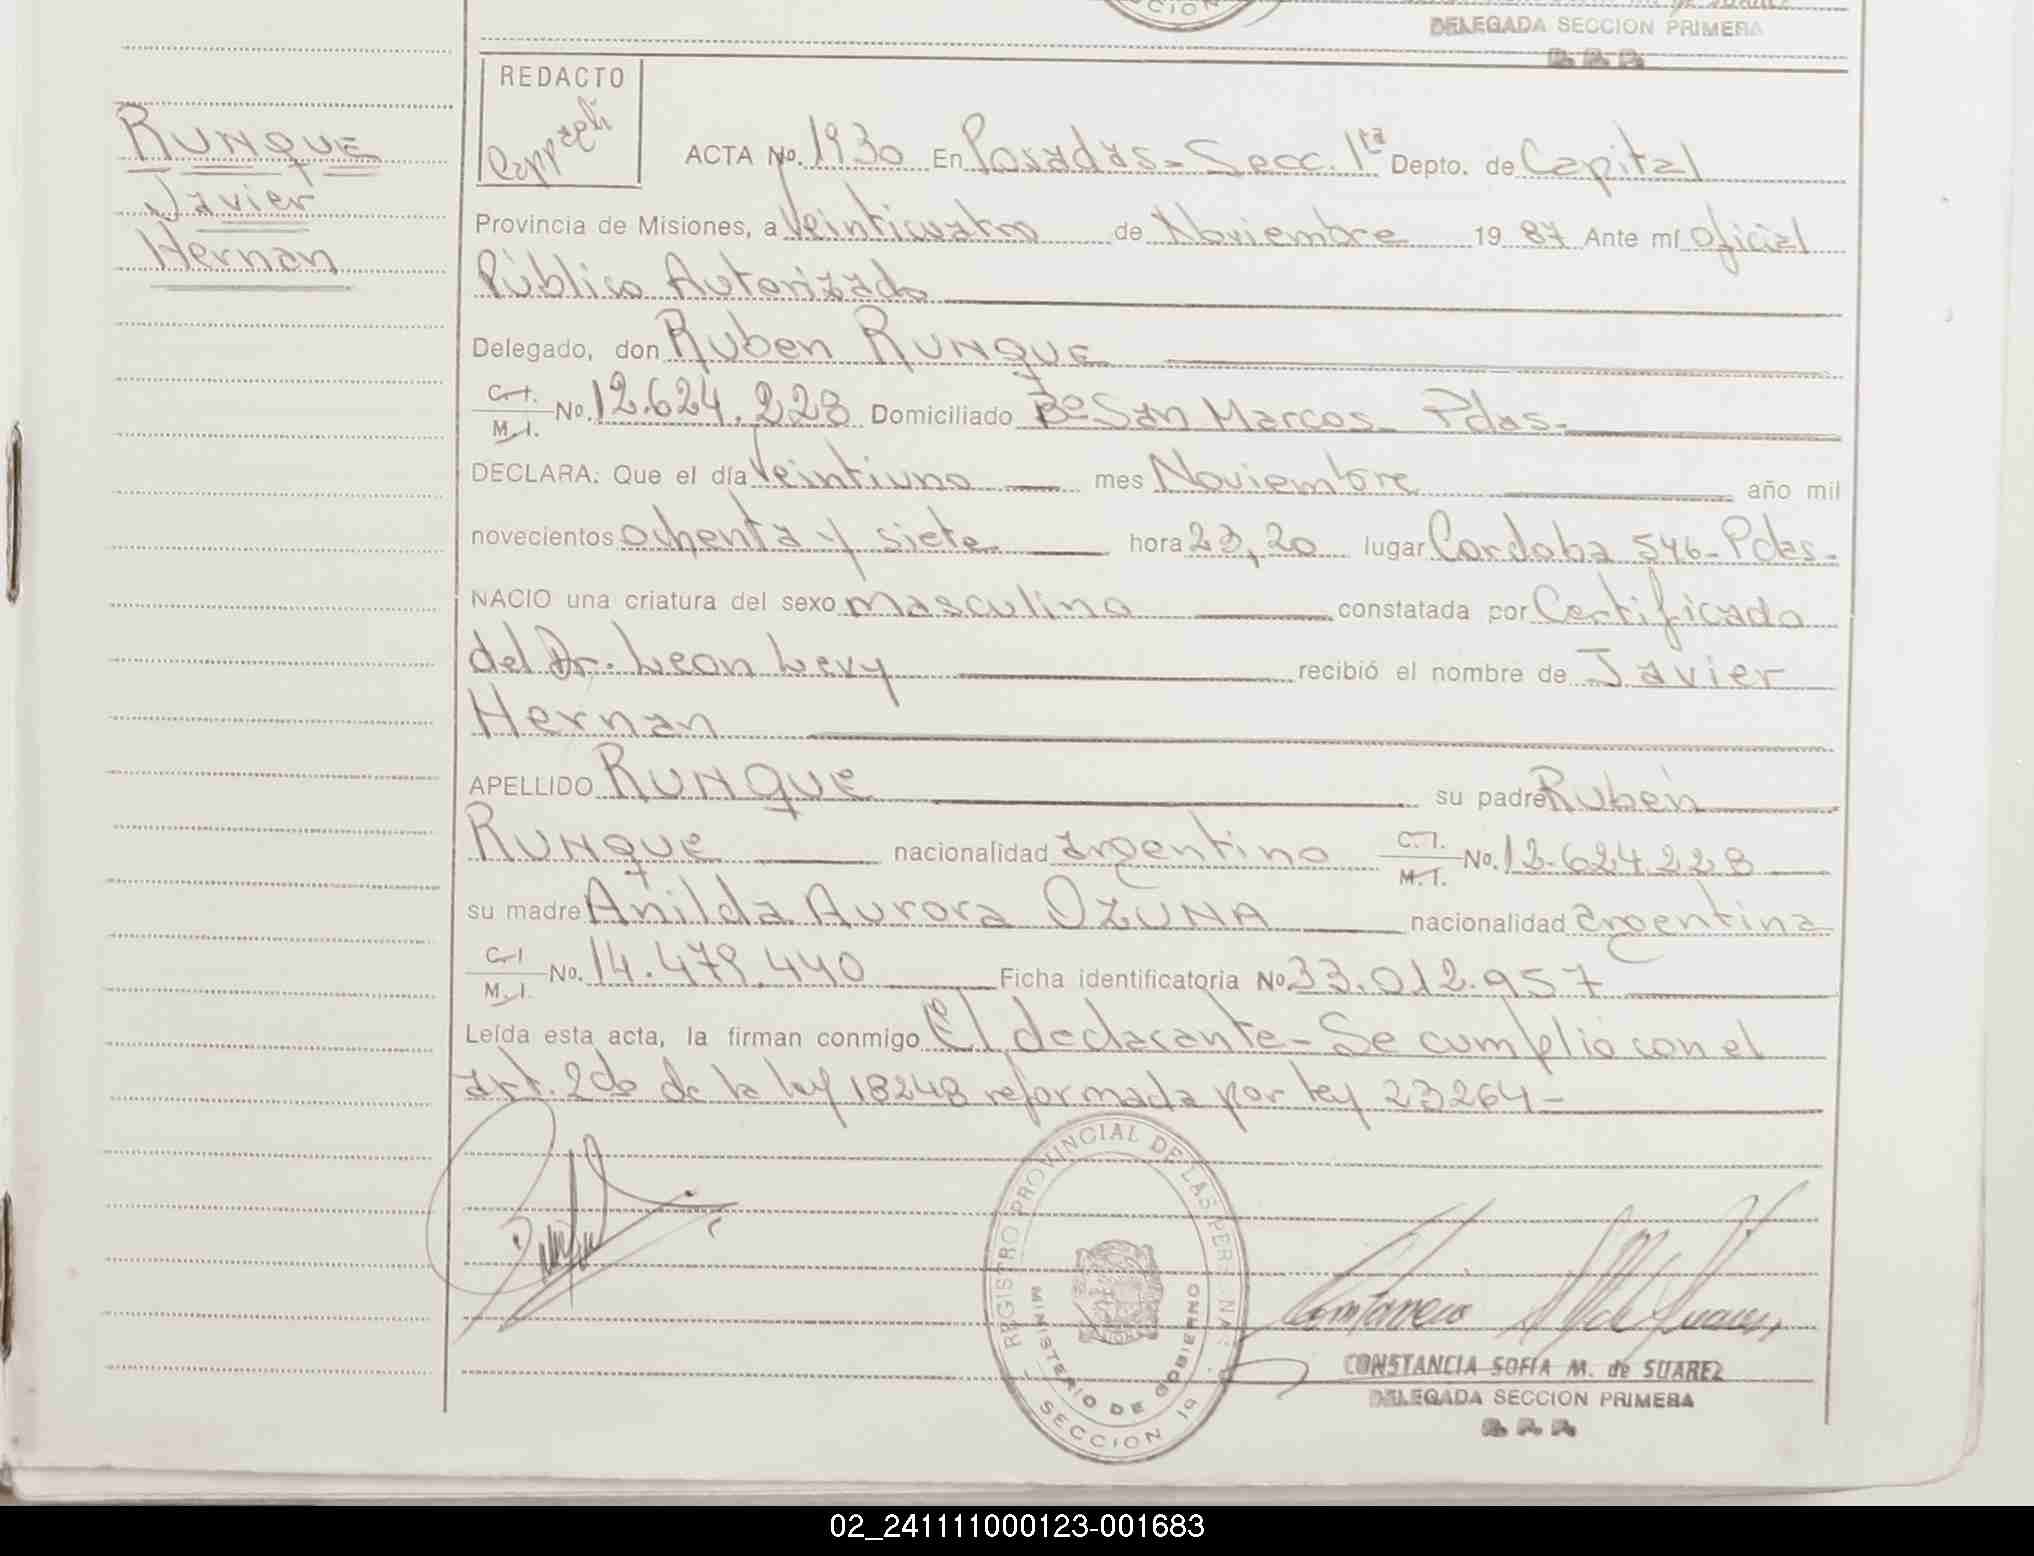 CION
DELEGADA SECCION PRIMERA
R. P. P.
RUNQUE
Javier
Hernan
REDACTO
ACTA No. 1930 En Posadas - Secc. 1ra Depto. de Capital
Provincia de Misiones, a Veinticuatro de Noviembre 19 87 Ante mí oficial
Público Autorizado
Delegado, don Ruben RUNQUE
C.I. M.I. No. 12.624.228 Domiciliado Bº San Marcos - Pdas -
DECLARA: Que el día Veintiuno mes Noviembre año mil
novecientos ochenta y siete hora 23,20 lugar Cordoba 546 - Pdas -
NACIO una criatura del sexo masculino constatada por Certificado
del Dr. Leon Levy recibió el nombre de Javier
Hernan
APELLIDO RUNQUE su padre Ruben
RUNQUE nacionalidad argentino C.I. M.I. No. 12.624.228
su madre Anilda Aurora OZUNA nacionalidad argentina
C.I M.I. No. 14.479.440 Ficha identificatoria No 33.012.957
Leída esta acta, la firman conmigo El declarante - Se cumplió con el
art. 2do de la ley 18248 reformada por ley 23264 -
REGISTRO PROVINCIAL DE LAS PER
MINISTERIO DE GOBIERNO
SECCION 1a
CONSTANCIA SOFIA M. de SUAREZ
DELEGADA SECCION PRIMERA
R. P. P.
02_241111000123-001683